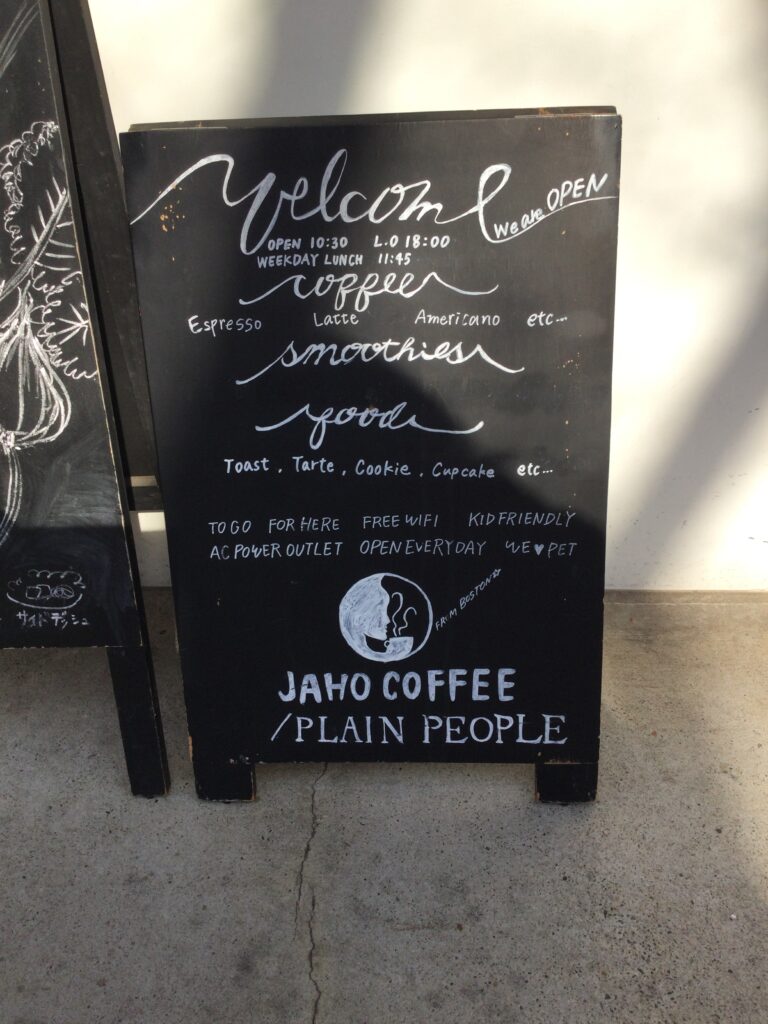 Welcome
We are OPEN
OPEN 10:30 L.O 18:00
WEEKDAY LUNCH 11:45
coffee
Espresso Latte Americano etc...
smoothies
food
Toast, Tarte, Cookie, Cupcake etc...
TO GO FOR HERE FREE WIFI KID FRIENDLY
AC POWER OUTLET OPEN EVERY DAY WE ♥ PET
FROM BOSTON☆
JAHO COFFEE
/PLAIN PEOPLE
サイドディッシュ